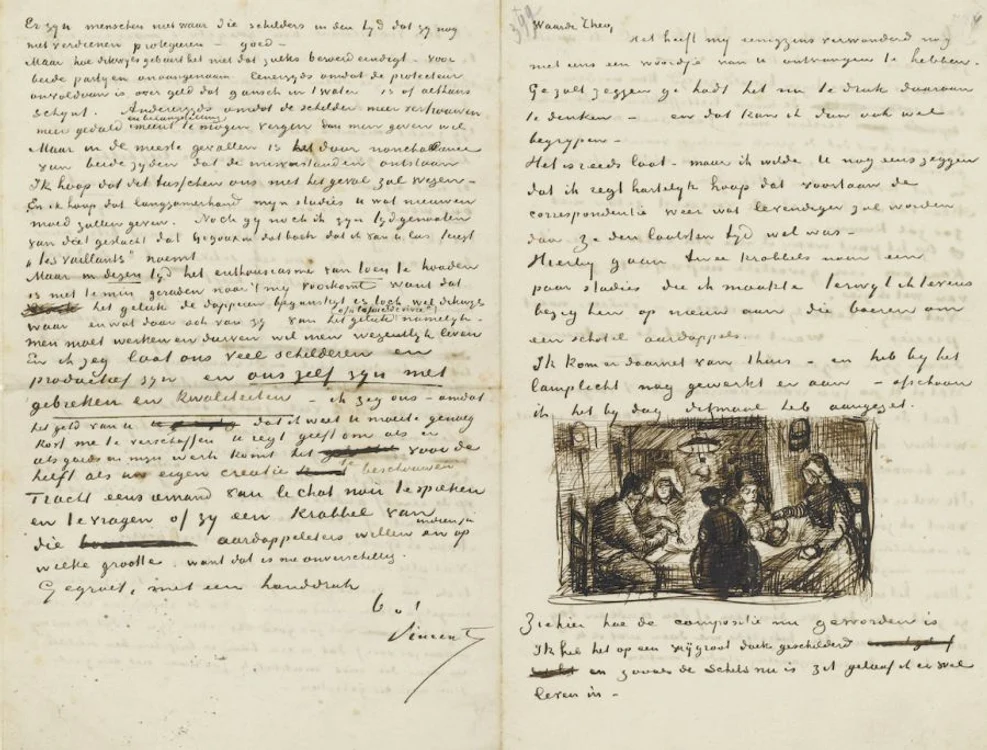 Er zyn menschen niet waar die schilders in den tyd dat zy nog
niet verdienen protegeren – goed –
Maar hoe dikwyls gebeurt het niet dat zulks beroerd eindigt – voor
beide partyen onaangenaam. Eenerzyds omdat de protecteur
onvoldaan is over geld dat gansch in 't water is of althans
schynt. Anderzyds omdat de schilder meer vertrouwen
meer geduld en belangstelling meent te mogen vergen dan men geven wil
Maar in de meeste gevallen is het door nonchalance
van beide zyden dat de misverstanden ontstaan
Ik hoop dat dit tusschen ons niet het geval zal wezen –
En ik hoop dat langzamerhand myn studies U wat nieuwen
moed zullen geven. Noch gy noch ik zyn tydgenooten
van dat geslacht dat Gigoux in dat boek dat ik van U las teregt
„les vaillants" noemt
Maar in dezen tyd het enthousiasme van toen te houden
is niet te min geraden naar 't my voorkomt want dat
het geluk de dapperen begunstigt is toch wel dikwyls
waar en wat daar ook van zy van het geluk (of la joie de vivre?) namelyk –
men moet werken en durven wil men wezentlyk leven
En ik zeg laat ons veel schilderen en
productief zyn en ons zelf zyn met
gebreken en kwaliteiten – ik zeg ons – omdat
het geld van U dat ik weet U moeite genoeg
kost me te verschaffen U regt geeft om als er
iets goeds in myn werk komt het voor de
helft als uw eigen creatie te beschouwen
Tracht eens iemand van le chat noir te spreken
en te vragen of zy een krabbel van
die aardappeleters willen en op indien ja
welke grootte. want dat is me onverschillig.
Gegroet, met een handdruk
b. à t.
Vincent
399
Waarde Theo,
Het heeft my eenigzins verwonderd nog
niet eens een woordje van U ontvangen te hebben.
Ge zult zeggen ge hadt het nu te druk daaraan
te denken – en dat kan ik dan ook wel
begrypen –
Het is reeds laat – maar ik wilde U nog eens zeggen
dat ik regt hartelyk hoop dat voortaan de
correspondentie weer wat levendiger zal worden
dan ze den laatsten tyd wel was –
Hierby gaan twee krabbels naar een
paar studies die ik maakte terwyl ik tevens
bezig ben op nieuw aan die boeren om
een schotel aardappels.
Ik kom er daarnet van thuis – en heb by het
lamplicht nog gewerkt er aan – ofschoon
ik het by dag ditmaal heb aangezet.
Ziehier hoe de compositie nu geworden is
Ik heb het op een vry groot doek geschilderd
en zooals de schets nu is zit geloof ik er wel
leven in –